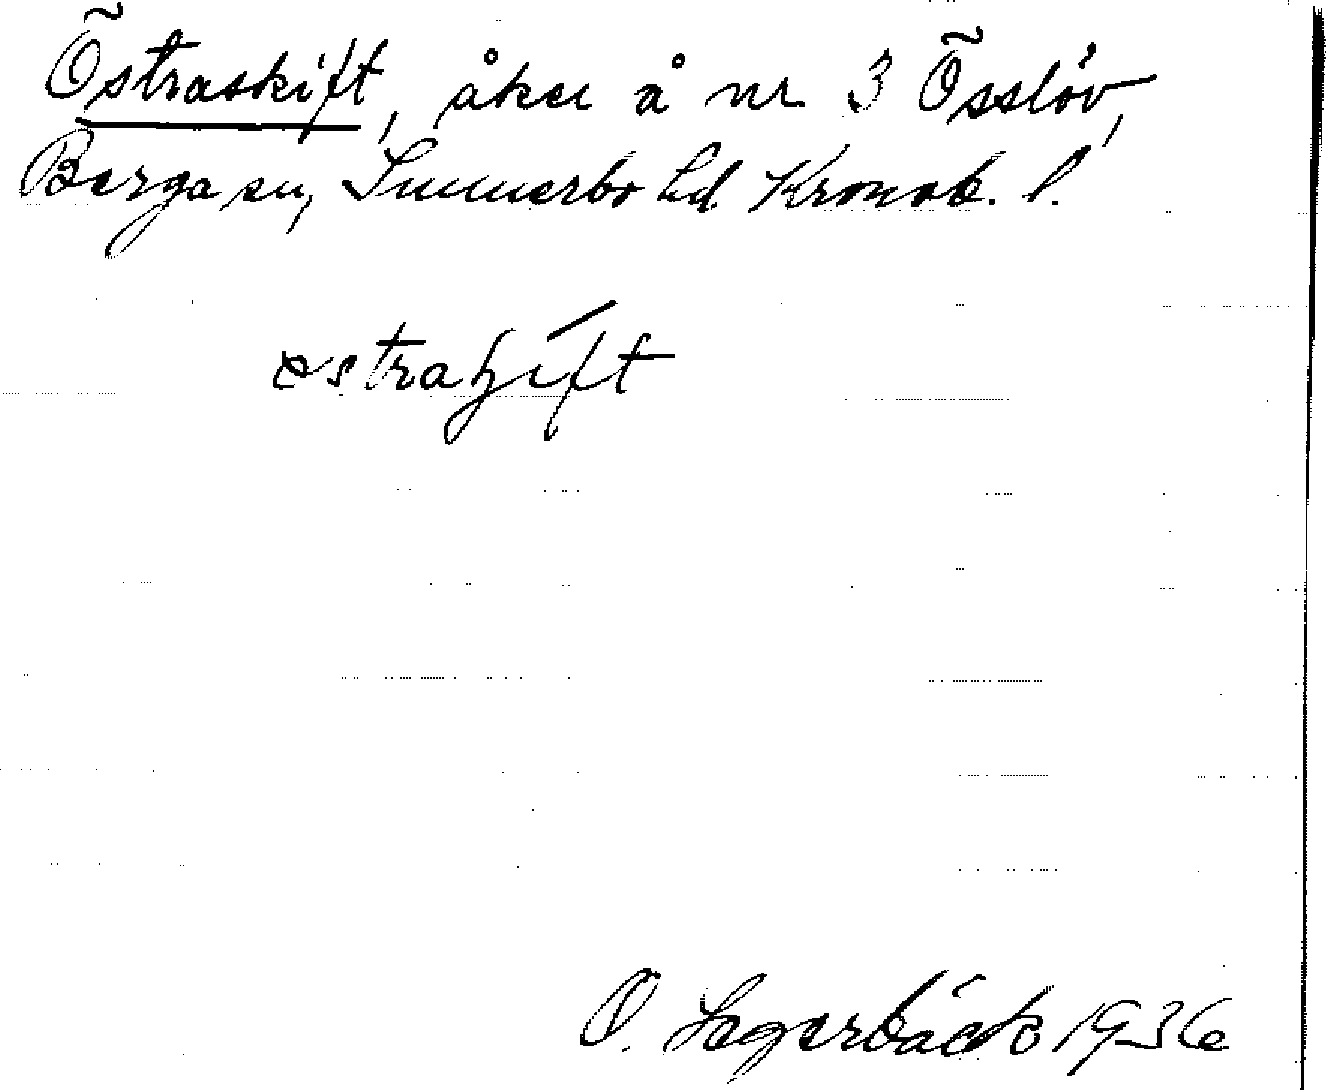 Östraskift, åker å nr 3 Össlöv,
Berga sn, Sunnerbo hd Kronob. l.
østraʃift
O. Lagerbäck 1936